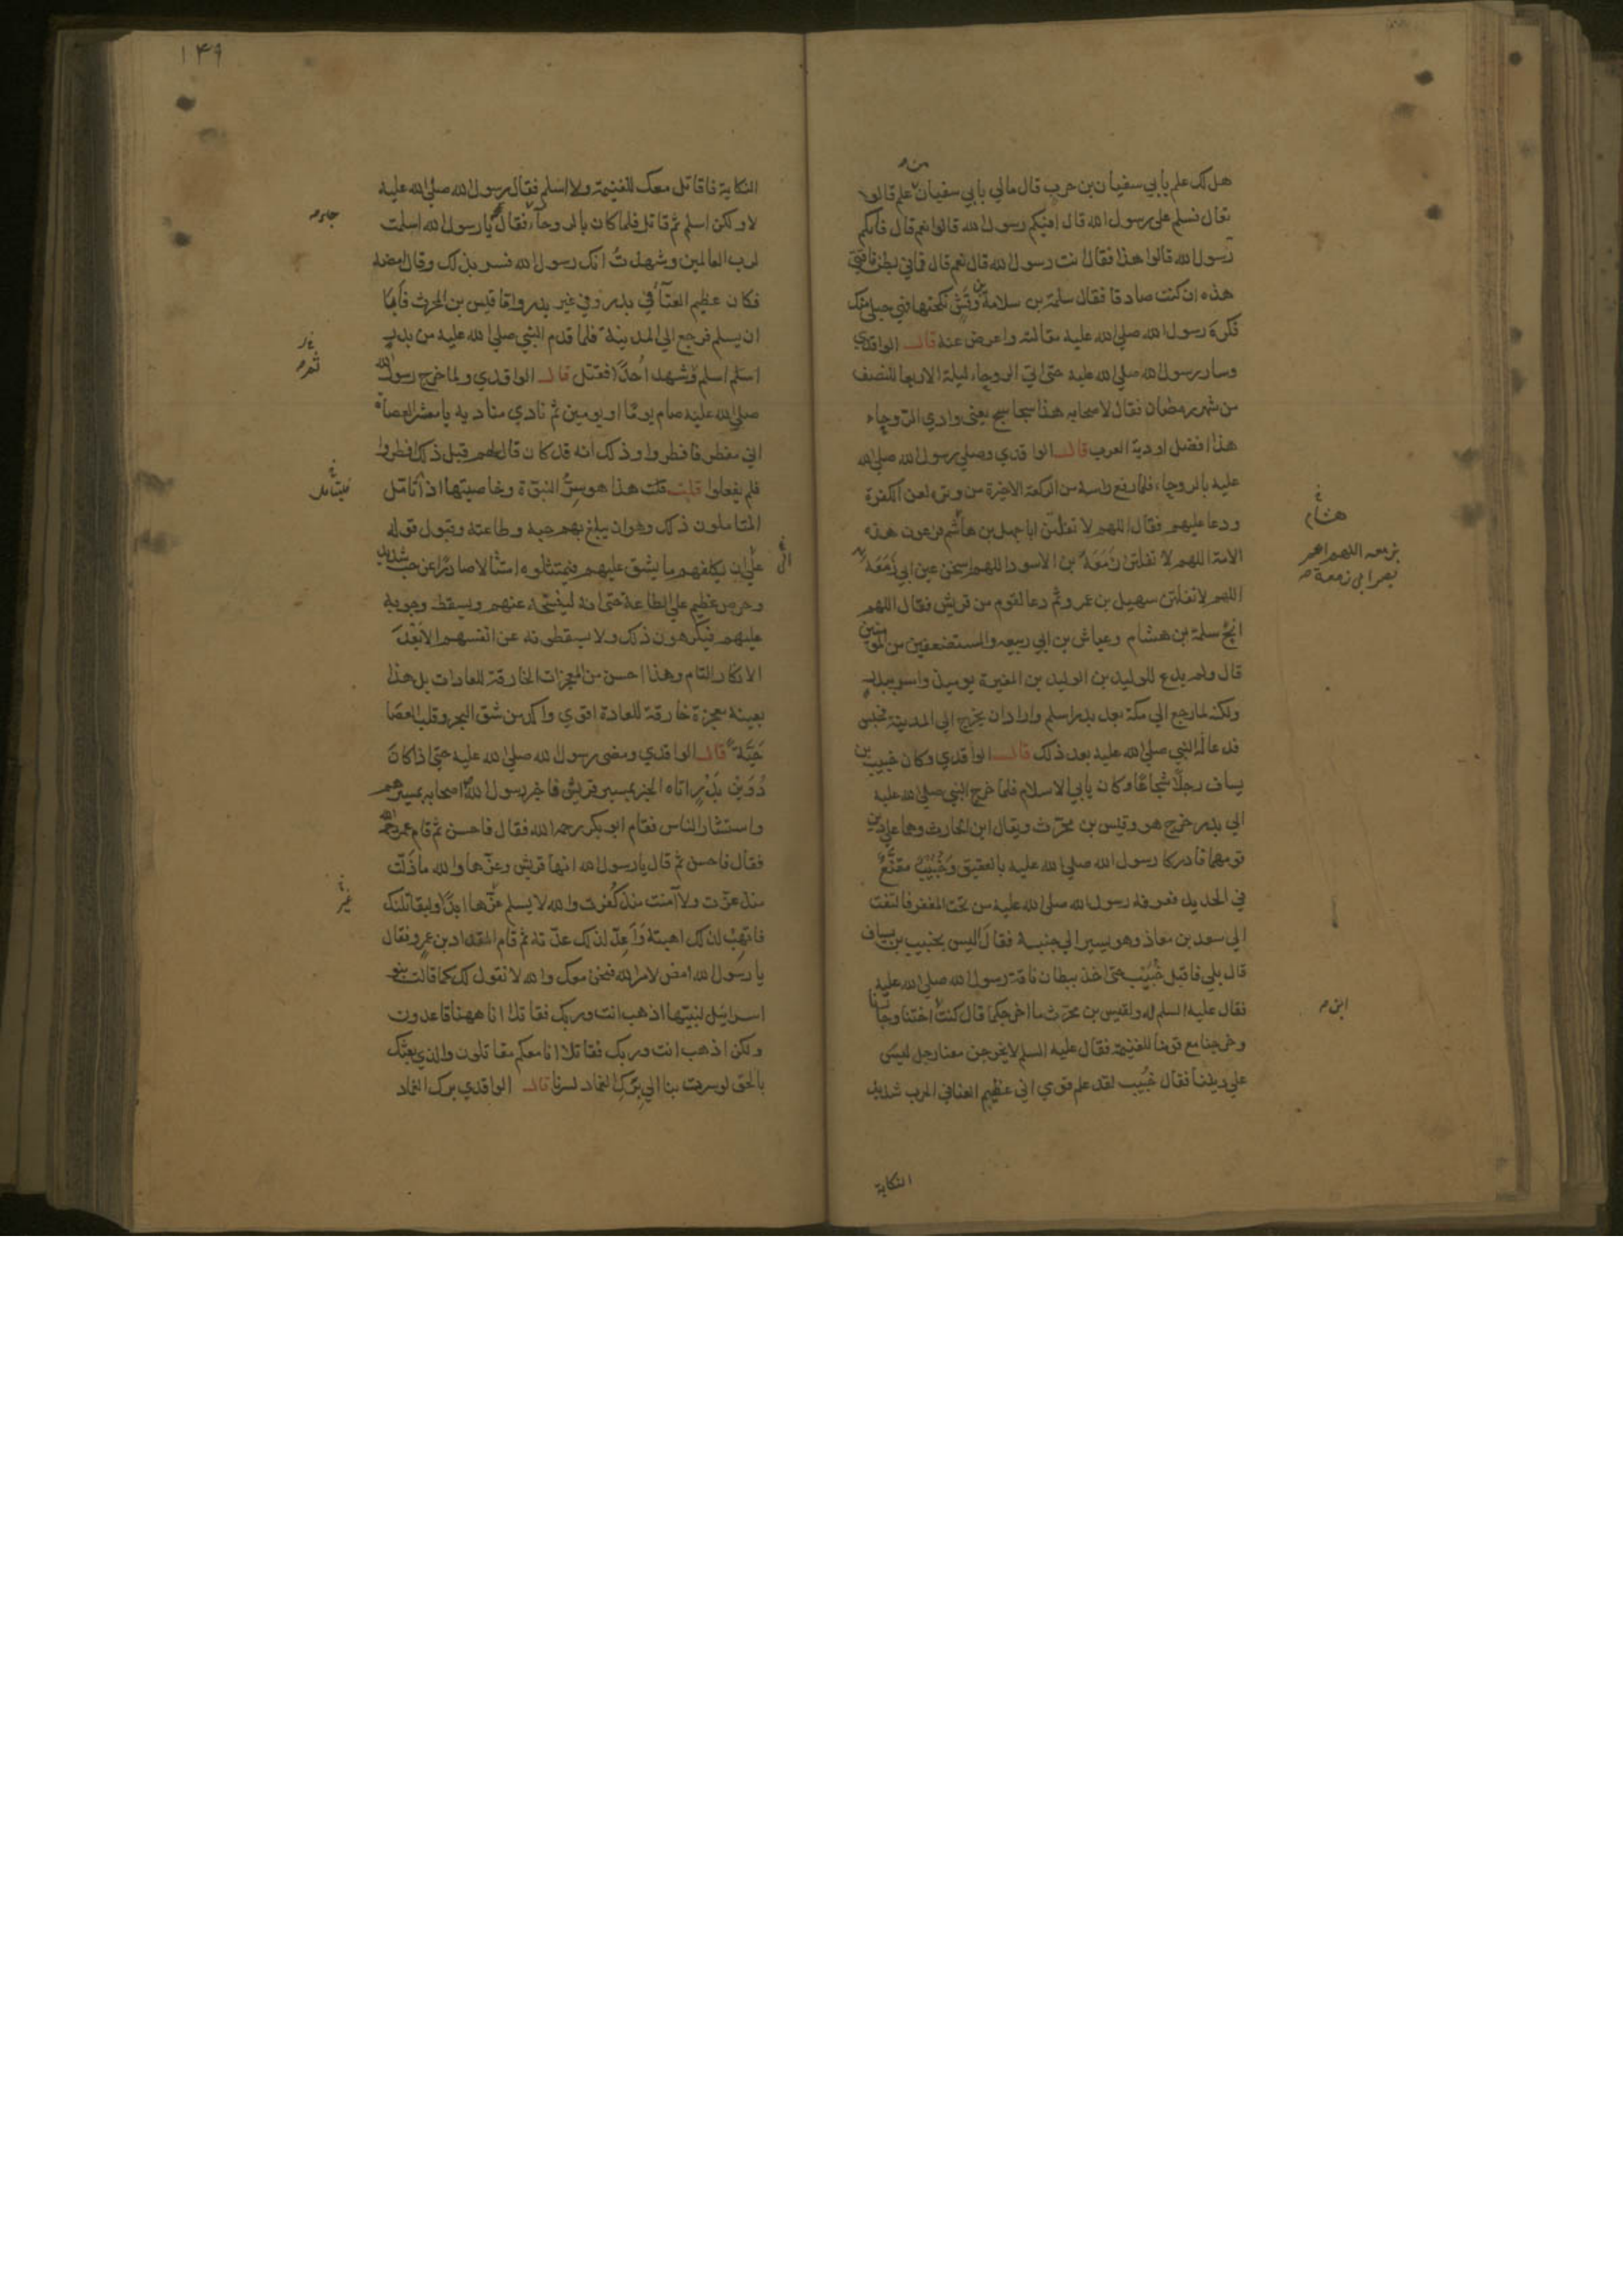 هل لك علم بابي سفيان بن حرب قال مالي بابي سفيان علم قالوا
تعال فسلم على رسول الله قال افيكم رسول الله قالوا نعم قال فايكم
رسول الله قالوا هذا فقال انت رسول الله قال نعم قال فما في بطن ناقتي
هذه ان كنت صادقا فقال سلمة بن سلامة بن وقش نكحتها فهي حبلى منك
فكره رسول الله صلى الله عليه مقالته واعرض عنه قال الواقدي
وسار رسول الله صلى الله عليه حتى اتى الروحاء ليلة الاربعا للنصف
من شهر رمضان فقال لاصحابه هذا سجاسج يعني وادي الروحاء
هذا افضل اودية العرب قال الواقدي وصلى رسول الله صلى الله
عليه بالروحاء فلما رفع راسه من الركعة الاخيرة من وتره لعن الكفرة
ودعا عليهم فقال اللهم لا تفلتن ابا جهل بن هاشم فرعون هذه
الامة اللهم لا تفلتن زمعة بن الاسود اللهم اسخن عين ابي زمعة
اللهم لا تفلتن سهيل بن عمرو ثم دعا لقوم من قريش فقال اللهم
انج سلمة بن هشام وعياش بن ابي ربيعه والمستضعفين من المومنين
قال ولم يدع للوليد بن الوليد بن المغيرة يومئذ واسر ببدر
ولكنه لما رجع الي مكة بعد بدر اسلم واراد ان يخرج الي المدينة فحبس
فدعا له النبي صلى الله عليه بعد ذلك قال الواقدي وكان خبيب بن
يساف رجلا شجاعا وكان يابي الاسلام فلما خرج النبي صلى الله عليه
الي بدر خرج هو وقيس بن محرث ويقال ابن الحارث وهما على دين
قومهما فادركا رسول الله صلى الله عليه بالعقيق وخبيب مقنع
في الحديد فعرفه رسول الله صلى الله عليه من تحت المغفر فالتفت
الي سعد بن معاذ وهو يسير الي جنبه فقال اليس بخبيب بن يساف
قال بلي فاقبل خبيب حتى اخذ ببطان ناقة رسول الله صلى الله عليه
فقال عليه السلم له ولقيس بن محرث ما اخرجكما قال كنت اختنا وجارنا
وخرجنا مع قومنا للغنيمة فقال عليه السلم لا يخرجن معنا رجل ليس
علي ديننا فقال خبيب لقد علم قومي اني عظيم الغنا في الحرب شديد
النكاية
هشام
بن معه اللهم اعم
بصر ابي زمعة
ابن
١٤٩
النكاية فاقاتل معك للغنيمة ولا اسلم فقال رسول الله صلى الله عليه
لا ولكن اسلم ثم قاتل فلما كان بالروحاء فقال يا رسول الله اسلمت
لرب العالمين وشهدت انك رسول الله فسر بذلك وقال امضه
فكان عظيم الغناء في بدر وفي غير بدر واما قيس بن المحرث فابى
ان يسلم فرجع الي المدينة فلما قدم النبي صلى الله عليه من بدر
اسلم اسلم وشهد احدا فقتل قال الواقدي ولما خرج رسول الله
صلى الله عليه صام يوما او يومين ثم نادي مناديه يا معشر العصاة
اني مفطر فافطروا وذلك انه قد كان قال لهم قبل ذلك افطروا
فلم يفعلوا قلت قلت هذا هو سر النبوة وخاصيتها اذا تامل
المتاملون ذلك وهو ان يبلغ بهم حبه وطاعته وقبول قوله
على ان يكلفهم ما يشق عليهم فيمتثلوه امتثالا صادرا عن حب شديد
وحرص عظيم على الطاعة حتى انه لينسخه عنهم ويسقط وجوبه
عليهم فيكرهون ذلك ولا يسقطونه عن انفسهم الا بعد
الانكار التام وهذا احسن من المعجزات الخارقة للعادات بل هذا
بعينه معجزة خارقة للعادة اقوي واكد من شق البحر وقلب العصا
حية قال الواقدي ومضى رسول الله صلى الله عليه حتى اذا كان
دوين بدر اتاه الخبر بمسير قريش فاخبر رسول الله اصحابه بمسيرهم
واستشار الناس فقام ابو بكر رحمه الله فقال فاحسن ثم قام عمر رحمه الله
فقال فاحسن ثم قال يا رسول الله انها قريش وعزها والله ماذلت
منذ عزت ولا آمنت منذ كفرت والله لا يسلم عزها ابدا وليقاتلنك
فاتهب لذلك اهبته واعد لذلك عدته ثم قام المقداد بن عمرو فقال
يا رسول الله امض لامر الله فنحن معك والله لا نقول لك كما قالت بنو
اسرائيل لنبيها اذهب انت وربك فقاتلا انا ههنا قاعدون
ولكن اذهب انت وربك فقاتلا انا معكم مقاتلون والذي بعثك
بالحق لو سرت بنا الي برك الغماد لسرنا قال الواقدي برك الغماد
غير